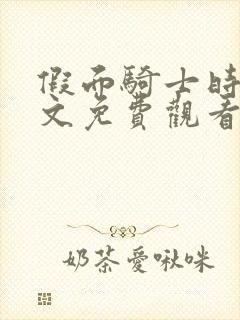 假面騎士時
文免費觀看
奶茶愛啾咪